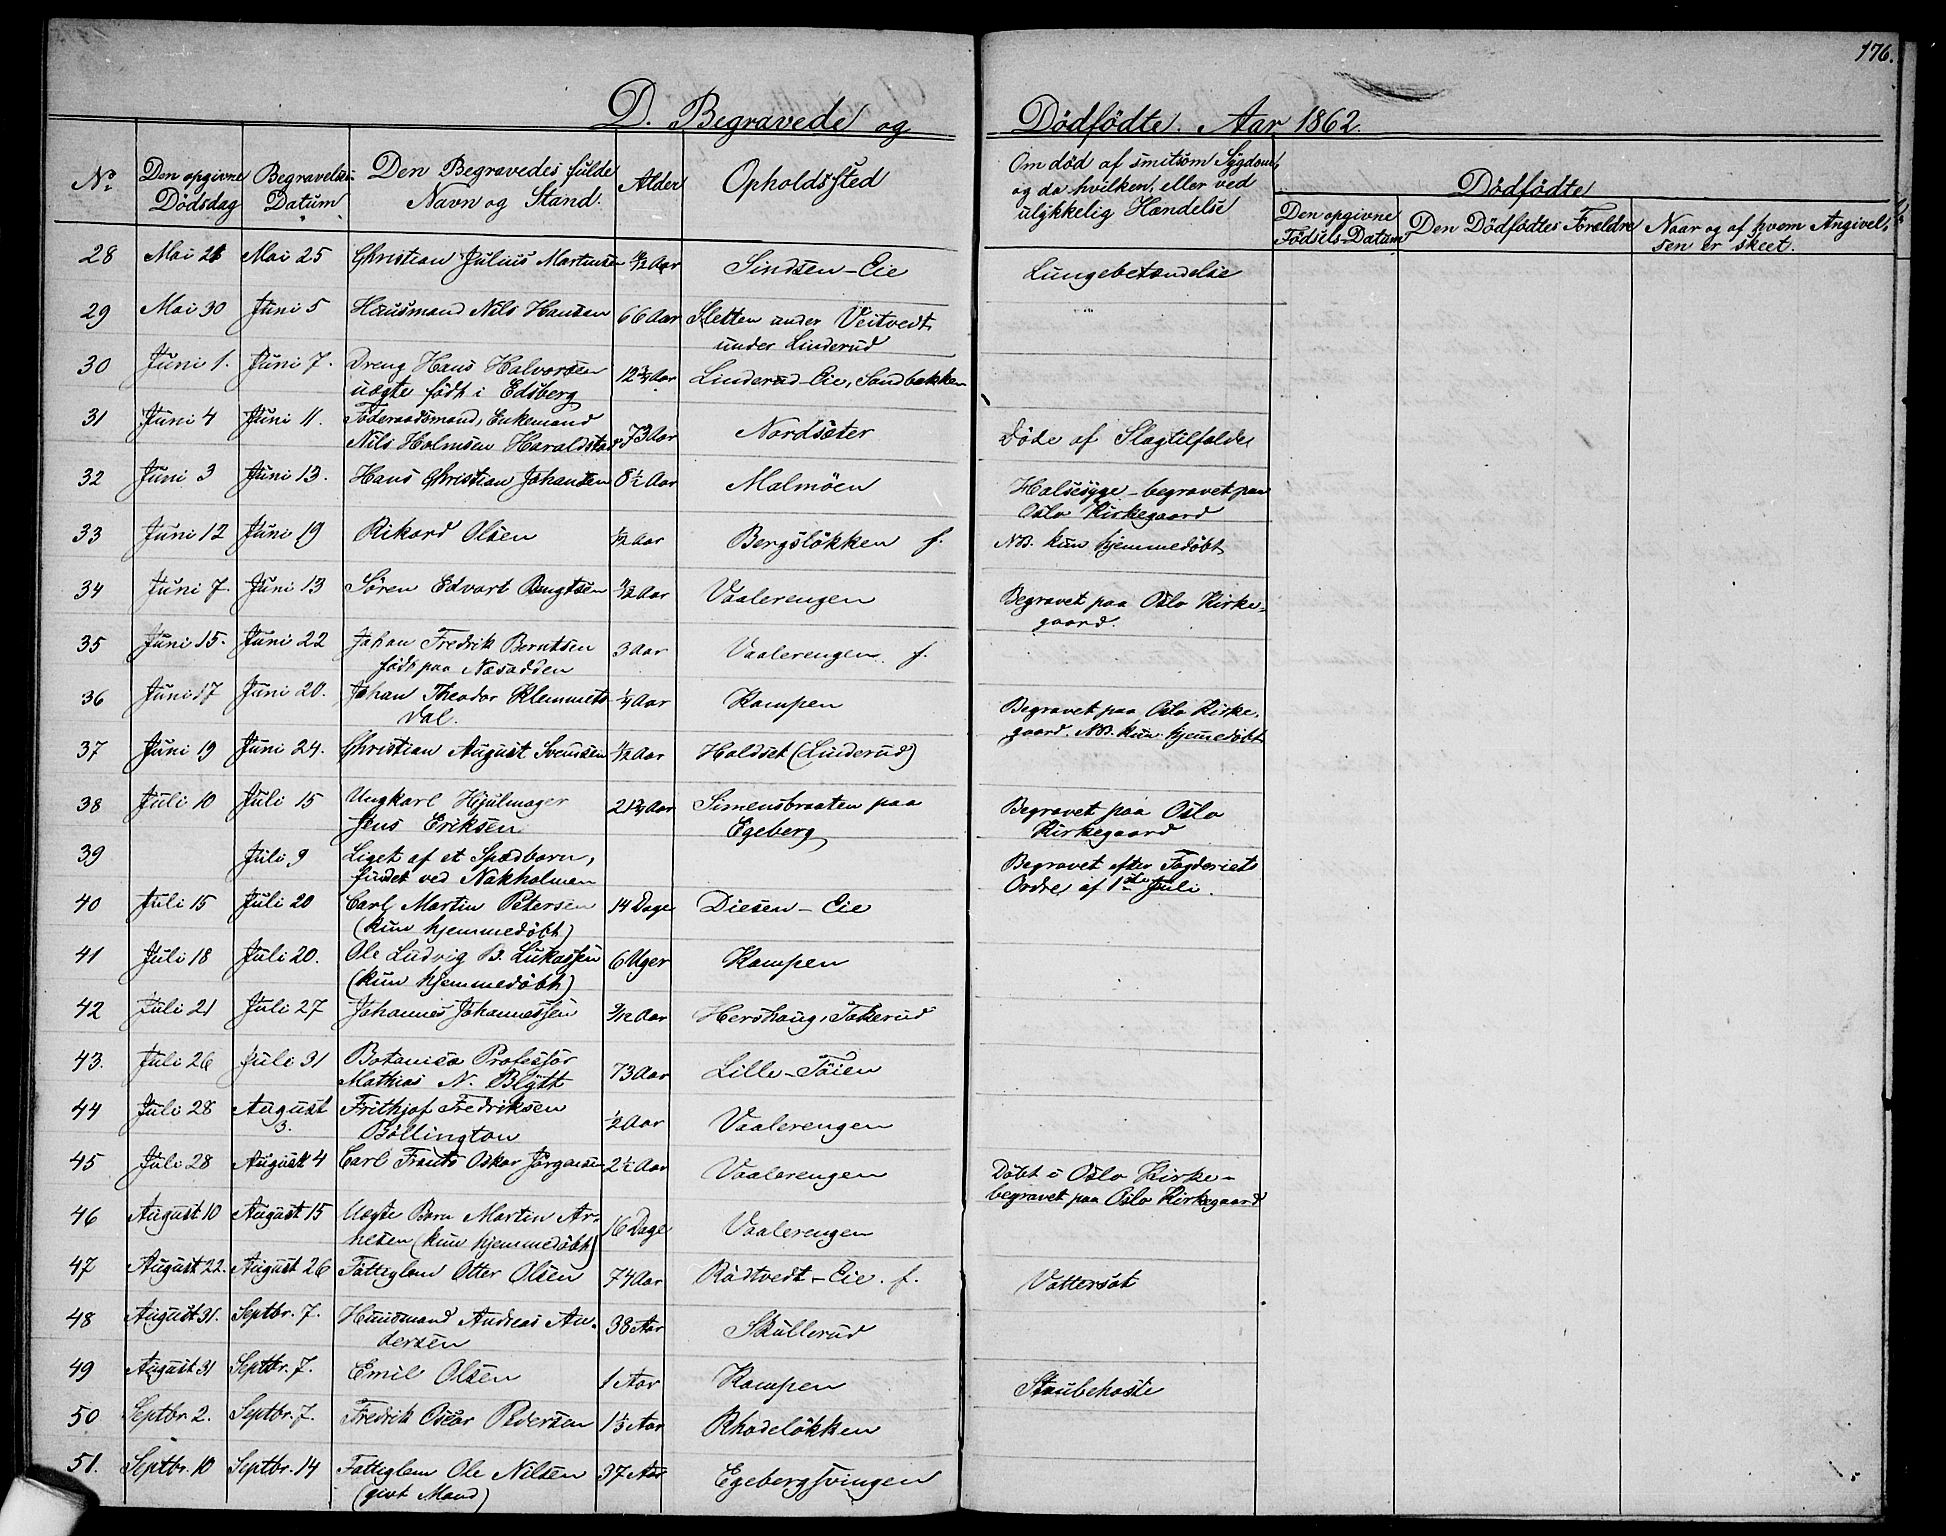 176.
D. Begravede og Dödfödte. Aar 1862.
No. Den opgivne Dödsdag Begravelses Datum Den Begravedes fulde Navn og Stand. Alder Opholdssted Om död af smitsom Sygdom, og da hvilken, eller ved ulykkelig Hændelse
Dödfödte
Den opgivne Födsels-Datum Den Dödfödtes Forældre Naar og af hvem Angivelsen er skeet.
28 Mai 21 Mai 25 Christian Julius Martinsen Aar Sindsen-Eie Lungebetændelse
29 Mai 30 Juni 5 Huusmand Nils Hansen 66 Aar Sletten under Veitvedt
under Linderud
30 Juni 1. Juni 7. Dreng Hans Halvorsen 12 3/4 Aar Linderud-Eie, Sandbakken
uægte födt i Edsberg
31 Juni 4 Juni 11. Föderaadsmand, Enkemand
Nils Holmsen Haraldstad 73 Aar Nordseter Döde af Slagtilfælde
32 Juni 3 Juni 13. Hans Christian Johansen 8 1/2 Aar Malmöen Halsesyge - begravet paa
Oslo Kirkegaard
33 Juni 12 Juni 19 Rikard Olsen 1/2 Aar Bergslökken f. NB. kun hjemmedöbt
34 Juni 7. Juni 13 Sören Edvart Bengtsen Aar Vaalerengen Begravet paa Oslo Kirke-
gaard.
35 Juni 15. Juni 22 Johan Fredrik Berntsen 3 Aar Vaalerengen f.
födt paa Næsodden
36 Juni 17 Juni 20. Johan Theodor Klemmets- 1/4 Aar Kampen Begravet paa Oslo Kirke-
dal. gaard. NB. kun hjemmedöbt
37 Juni 19 Juni 24. Christian August Svensen 1/2 Aar Holdset (Linderud)
38 Juli 10 Juli 15 Ungkarl Hjulmager 21 3/4 Aar Simensbraaten paa Begravet paa Oslo
Jens Eriksen Egeberg Kirkegaard
39 Juli 9 Liget af et Spædbarn, Begravet efter Fogderiets
fundet ved Nakholmen Ordre af 1ste Juli.
40 Juli 15 Juli 20 Carl Martin Petersen 14 Dage Diesen-Eie
(kun hjemmedöbt)
41 Juli 18 Juli 20. Ole Ludvig B. Lukassen 6 Uger Kampen
(kun hjemmedöbt)
42 Juli 21 Juli 27 Johannes Johannessen 9/12 Aar Hershaug, Tokerud
43. Juli 26 Juli 31 Botanices Professor
Mathias N. Blÿtt 73 Aar Lille-Töien
44 Juli 28 August 3. Frithjof Fredriksen 1/2 Aar Vaalerengen
Böllington
45 Juli 28 August 4 Carl Frants Oskar Jörgensen 2 1/2 Aar Vaalerengen Döbt i Oslo Kirke-
begravet paa Oslo Kirkegaard
46 August 10 August 15 Uægte Barn Martin Ar- 16 Dage Vaalerengen
nesen (kun hjemmedöbt)
47 August 22. August 26 Fattiglem Otter Olsen 74 Aar Rödtvedt-Eie. f. Vattersot
48 August 31. Septbr. 7. Huusmand Andreas An- 38 Aar Skullerud
dersen
49 August 31 Septbr. 7. Emil Olsen 1 Aar Kampen Straubehoste
50 Septbr. 2. Septbr. 7. Fredrik Oscar Pedersen 1 1/3 Aar Rhodelökken
51. Septbr. 10 Septbr. 14 Fattiglem Ole Nilsen 37 Aar Egebergsvingen
(givt Mand)